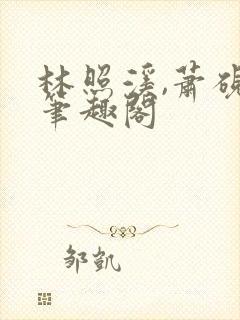 林照溪,萧砚
笔趣阁
邹凯